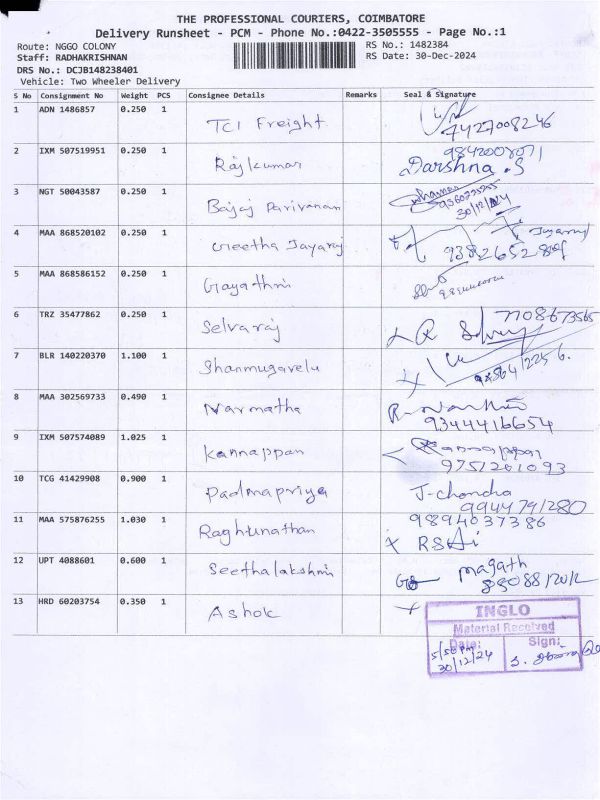 THE PROFESSIONAL COURIERS, COIMBATORE
Delivery Runsheet - PCM - Phone No.:0422-3505555 - Page No.:1
Route: NGGO COLONY RS No.: 1482384
Staff: RADHAKRISHNAN RS Date: 30-Dec-2024
DRS No.: DCJB148238401
Vehicle: Two Wheeler Delivery
S No Consignment No Weight PCS Consignee Details Remarks Seal & Signature
1 ADN 1486857 0.250 1 TCI Freight 7427008246
2 IXM 507519951 0.250 1 Rajkumar Darshna .S
3 NGT 50043587 0.250 1 Bajaj Parivanan 30/12/24
4 MAA 868520102 0.250 1 Geetha Jayaraj Jayaraj
5 MAA 868586152 0.250 1 Gayathri
6 TRZ 35477862 0.250 1 Selvaraj 7708673565
7 BLR 140220370 1.100 1 Shanmugavelu
8 MAA 302569733 0.490 1 Narmatha 9344416654
9 IXM 507574089 1.025 1 Kannappan Kannappan
9751261093
10 TCG 41429908 0.900 1 Padmapriya J-chandra
9944791280
11 MAA 575876255 1.030 1 Raghunathan 9894037386
12 UPT 4088601 0.600 1 Seethalakshmi magath
13 HRD 60203754 0.350 1 Ashok
INGLO
Material Received
Date: Sign:
5/50 PM
30/12/24